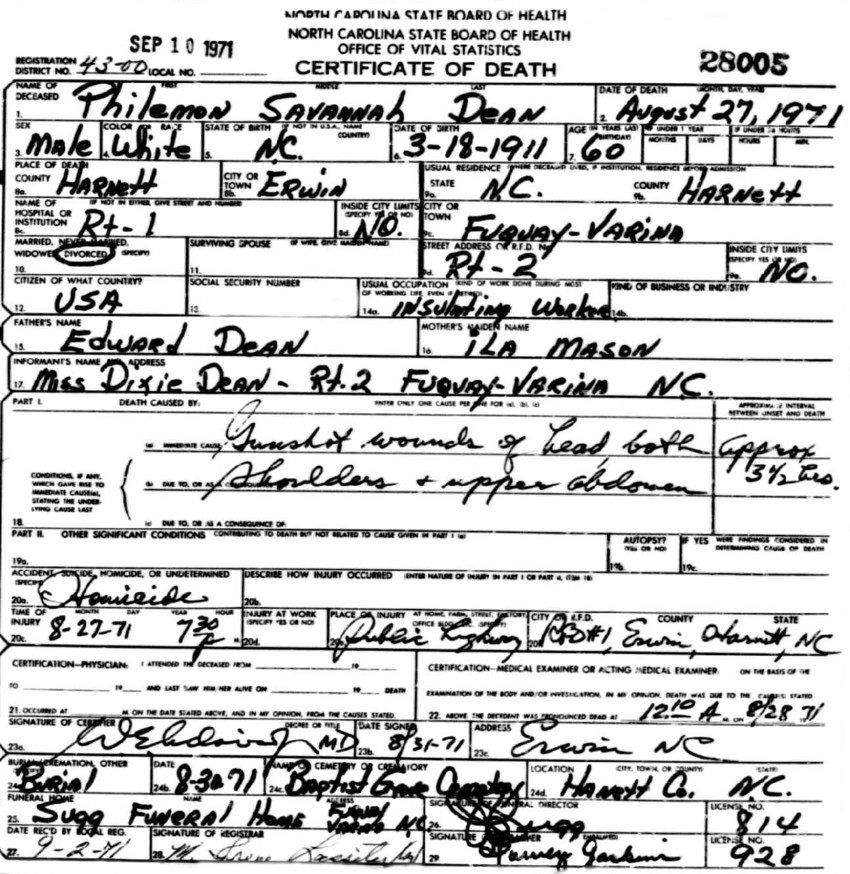 NORTH CAROLINA STATE BOARD OF HEALTH
NORTH CAROLINA STATE BOARD OF HEALTH
OFFICE OF VITAL STATISTICS
CERTIFICATE OF DEATH
SEP 10 1971
28005
REGISTRATION DISTRICT NO. 43-00 LOCAL NO.
NAME OF DECEASED FIRST MIDDLE LAST DATE OF DEATH MONTH, DAY, YEAR
1. Philemon Savannah Dean 2. August 27, 1971
SEX COLOR OR RACE STATE OF BIRTH (IF NOT IN U.S.A., NAME COUNTRY) DATE OF BIRTH AGE (IN YEARS LAST BIRTHDAY) IF UNDER 1 YEAR MONTHS DAYS IF UNDER 24 HOURS HOURS MIN.
3. Male 4. White 5. N.C. 6. 3-18-1911 7. 60
PLACE OF DEATH USUAL RESIDENCE (WHERE DECEASED LIVED, IF INSTITUTION, RESIDENCE BEFORE ADMISSION)
COUNTY 8a. Harnett CITY OR TOWN 8b. Erwin STATE 9a. N.C. COUNTY 9b. Harnett
NAME OF HOSPITAL OR INSTITUTION (IF NOT IN EITHER, GIVE STREET AND NUMBER) 8c. Rt-1 INSIDE CITY LIMITS (SPECIFY YES OR NO) 8d. No. CITY OR TOWN 9c. Fuquay-Varina
MARRIED, NEVER MARRIED, WIDOWED, DIVORCED (SPECIFY) SURVIVING SPOUSE (IF WIFE, GIVE MAIDEN NAME) STREET ADDRESS OR R.F.D. NO. INSIDE CITY LIMITS (SPECIFY YES OR NO)
10. 11. 9d. Rt-2 9e. No.
CITIZEN OF WHAT COUNTRY? SOCIAL SECURITY NUMBER USUAL OCCUPATION (KIND OF WORK DONE DURING MOST OF WORKING LIFE, EVEN IF RETIRED) KIND OF BUSINESS OR INDUSTRY
12. USA 13. 14a. Insulating Worker 14b.
FATHER'S NAME MOTHER'S MAIDEN NAME
15. Edward Dean 16. Ila Mason
INFORMANT'S NAME AND ADDRESS
17. Miss Dixie Dean - Rt. 2 Fuquay-Varina N.C.
PART I. DEATH CAUSED BY: ENTER ONLY ONE CAUSE PER LINE FOR (a), (b), (c) APPROXIMATE INTERVAL BETWEEN ONSET AND DEATH
(a) IMMEDIATE CAUSE Gunshot wounds of head, both approx
CONDITIONS, IF ANY, WHICH GAVE RISE TO IMMEDIATE CAUSE(a), STATING THE UNDERLYING CAUSE LAST
(b) DUE TO, OR AS A CONSEQUENCE OF: shoulders + upper abdomen 3½ hrs.
18. (c) DUE TO, OR AS A CONSEQUENCE OF:
PART II. OTHER SIGNIFICANT CONDITIONS CONTRIBUTING TO DEATH BUT NOT RELATED TO CAUSE GIVEN IN PART I (a) AUTOPSY? (YES OR NO) IF YES WERE FINDINGS CONSIDERED IN DETERMINING CAUSE OF DEATH
19a. 19b. 19c.
ACCIDENT, SUICIDE, HOMICIDE, OR UNDETERMINED (SPECIFY) DESCRIBE HOW INJURY OCCURRED (ENTER NATURE OF INJURY IN PART I OR PART II, ITEM 18)
20a. Homicide 20b.
TIME OF INJURY MONTH DAY YEAR HOUR INJURY AT WORK (SPECIFY YES OR NO) PLACE OF INJURY AT HOME, FARM, STREET, FACTORY, OFFICE BLDG. (SPECIFY) CITY OR R.F.D. COUNTY STATE
20c. 8-27-71 7 30 P M. 20d. Public Highway RFD#1, Erwin, Harnett, NC
CERTIFICATION—PHYSICIAN: I ATTENDED THE DECEASED FROM 19 CERTIFICATION—MEDICAL EXAMINER OR ACTING MEDICAL EXAMINER: ON THE BASIS OF THE
TO 19 AND LAST SAW HIM/HER ALIVE ON 19 DEATH EXAMINATION OF THE BODY AND/OR INVESTIGATION, IN MY OPINION, DEATH WAS DUE TO THE CAUSE(S) STATED
21. OCCURRED AT M. ON THE DATE STATED ABOVE, AND IN MY OPINION, FROM THE CAUSES STATED. 22. ABOVE. THE DECEDENT WAS PRONOUNCED DEAD AT 12:10 A M. ON 8/28 71
SIGNATURE OF CERTIFIER DEGREE OR TITLE DATE SIGNED ADDRESS
23a. MD 23b. 8/31-71 23c. Erwin NC
BURIAL, CREMATION, OTHER DATE NAME OF CEMETERY OR CREMATORY LOCATION CITY, TOWN, OR COUNTY STATE
24a. Burial 24b. 8-30-71 24c. Baptist Grove Cemetery 24d. Harnett Co. N.C.
FUNERAL HOME NAME ADDRESS SIGNATURE OF FUNERAL DIRECTOR LICENSE NO.
25. Sugg Funeral Home Fuquay Varina N.C. 26. Sugg 814
DATE REC'D BY LOCAL REG. SIGNATURE OF REGISTRAR SIGNATURE EMBALMER LICENSE NO.
27. 9-2-71 28. M. Irene Lassiter 29 928